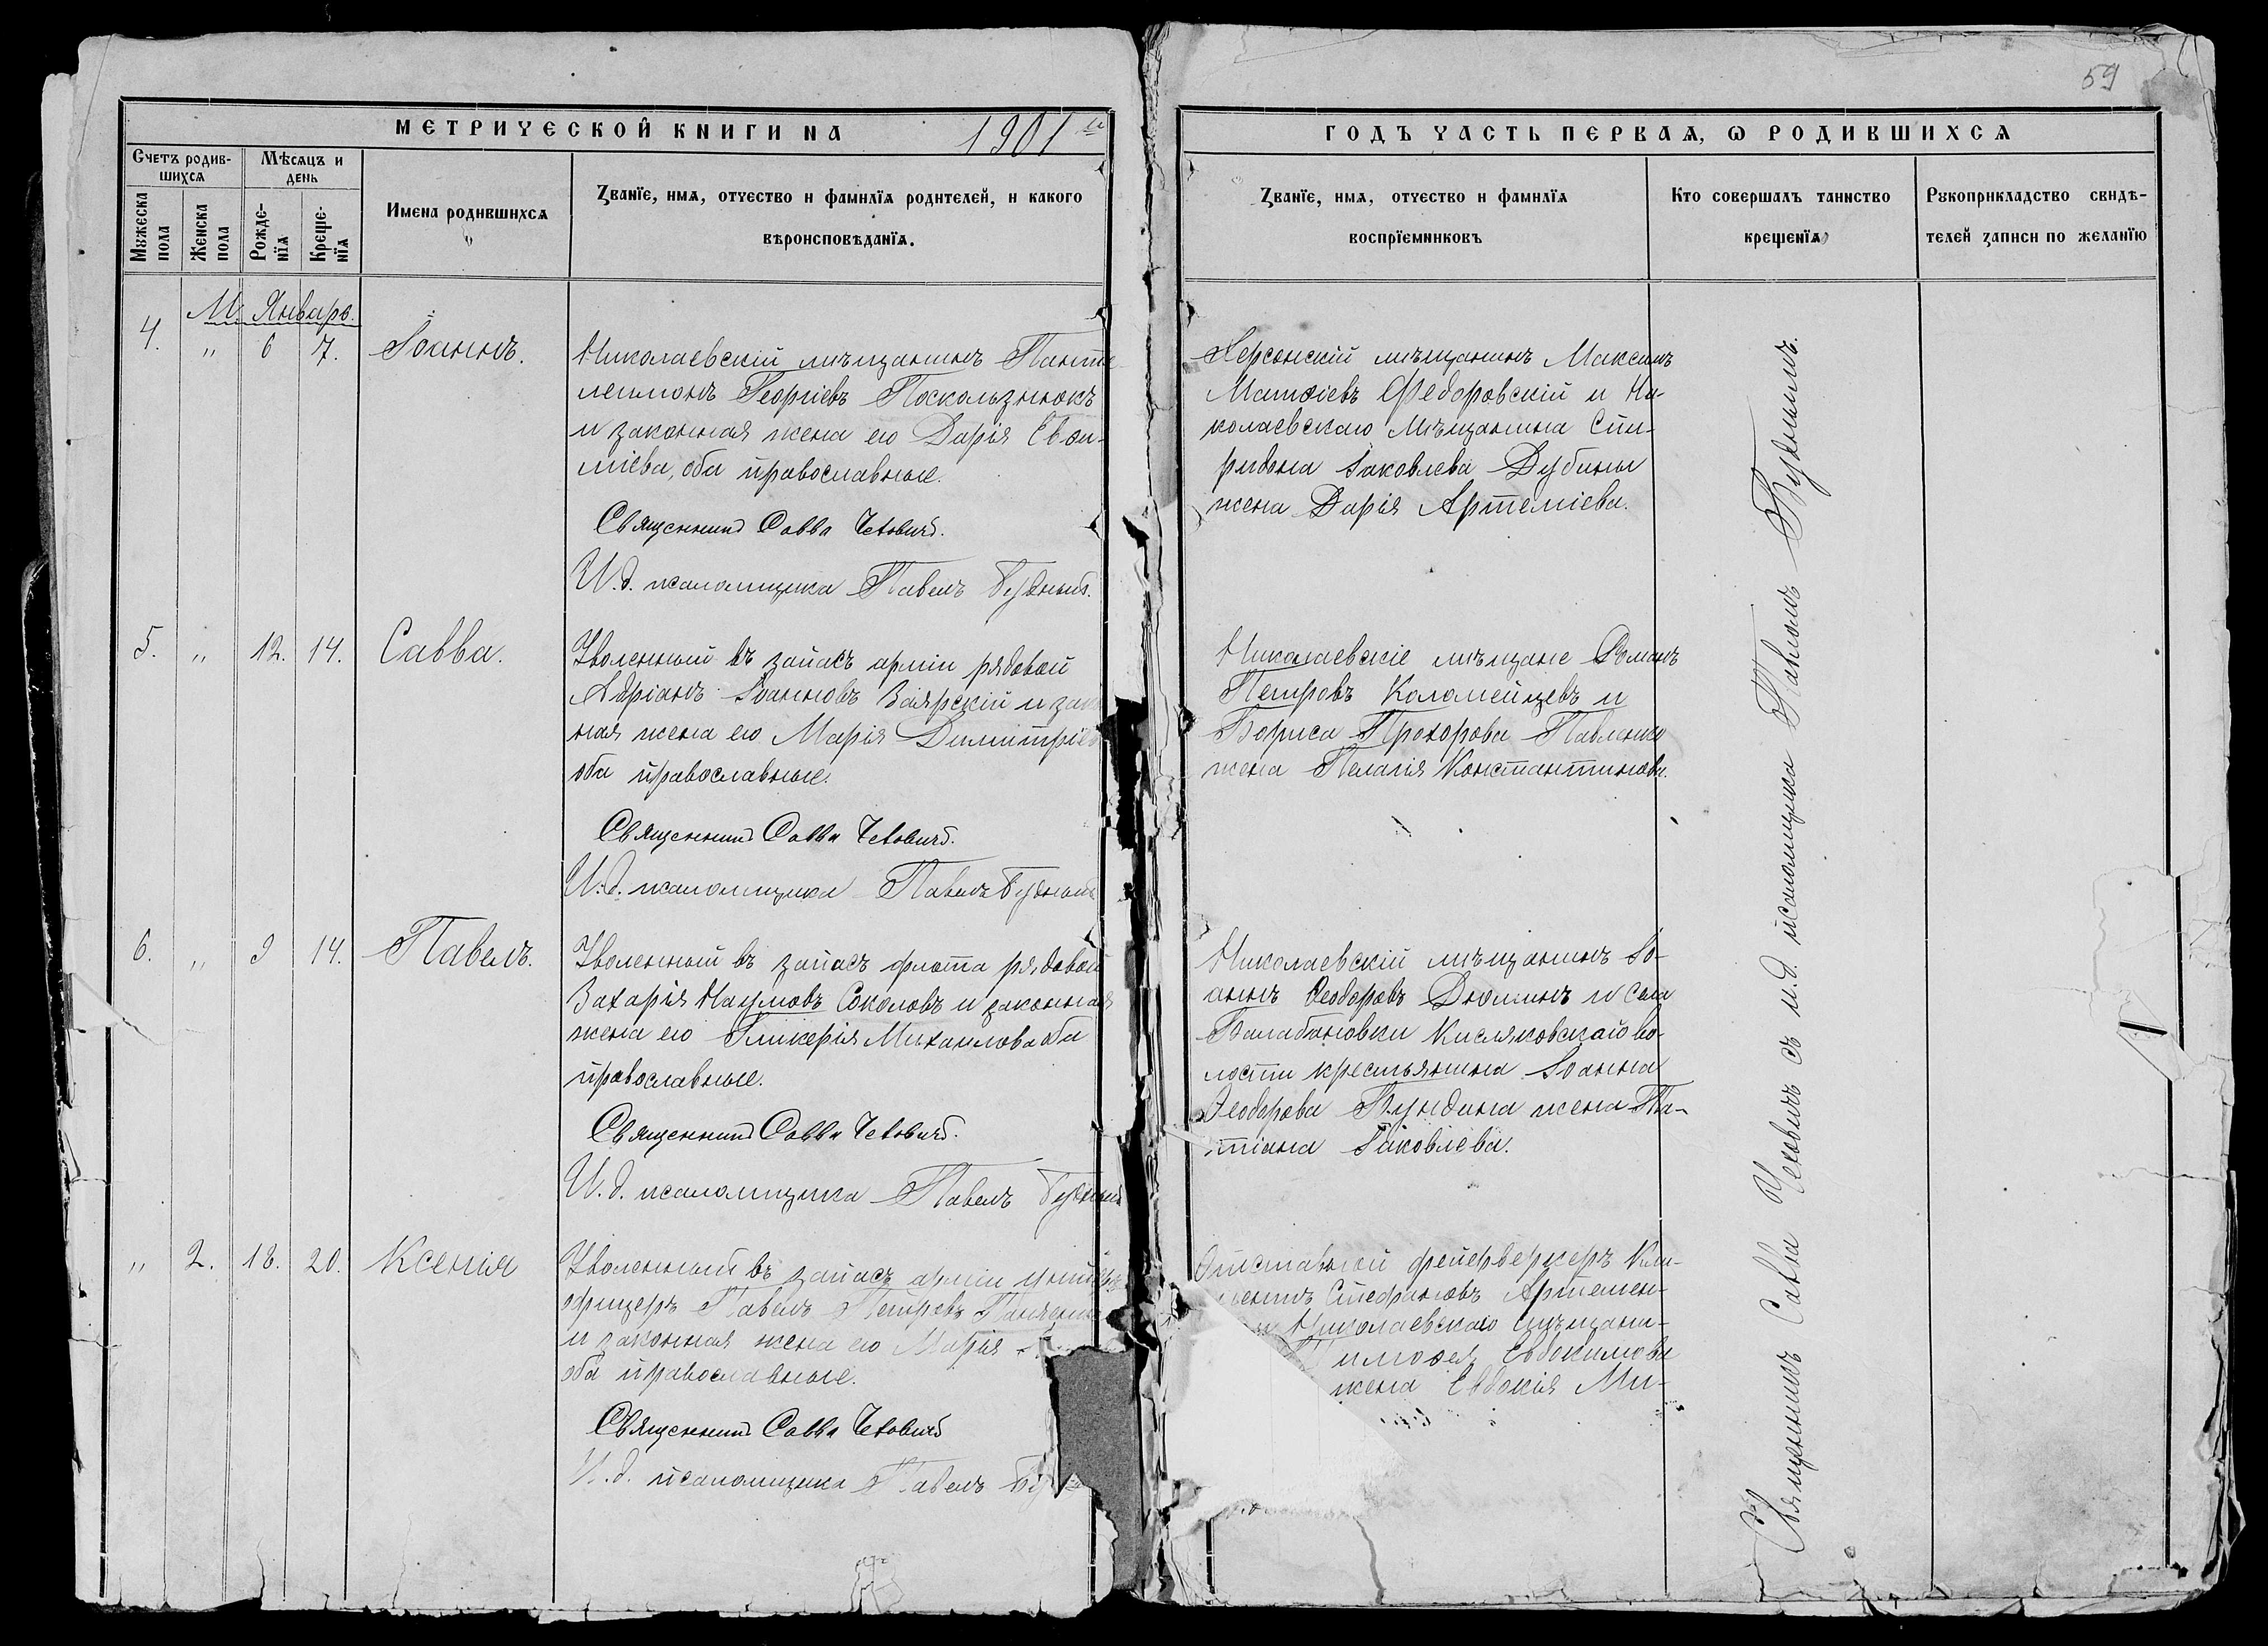 59
МЕТРИЧЕСКОЙ КНИГИ НА 1901 й
ГОДЪ ЧАСТЬ ПЕРВАЯ, Ѡ РОДИВШИХСЯ
Счетъ родив-
шихся
Мѣсяцъ и
день
Мужеска
пола
Женска
пола
Рожде-
нїя
Креще-
нїя
Имена родившихся
Званїе, имя, отчество и фамилїя родителей, и какого
вѣроисповѣданїя.
Званїе, имя, отчество и фамилїя
воспрїемниковъ
Кто совершалъ таинство
крещенїя
Рукоприкладство свидѣ-
телей записи по желанїю
М. Январь.
4. " 6 7. Іоаннъ.
Николаевскій мѣщанинъ Панте
леимонъ Георгіевъ Поскользнюкъ
и законная жена его Дарія Евѳи-
міева, оба православные.
Священникъ Савва Чеховичъ.
И.д. псаломщика Павелъ Будный.
Херсонскій мѣщанинъ Максимъ
Матѳіевъ Федоровскій и Ни-
колаевскаго мѣщанина Спи-
ридона Іаковлева Дубины
жена Дарія Артеміева.
5. " 12. 14. Савва.
Уволенный въ запасъ арміи рядовой
Адріанъ Іоанновъ Заярскій и зак
ная жена его Марія Димитріев
оба православные.
Священникъ Савва Чеховичъ.
И.д. псаломщика Павелъ Будный
Николаевскіе мѣщане Романъ
Петровъ Коломейцевъ и
Бориса Прохорова Павленко
жена Пелагія Константинова.
6. " 9 14. Павелъ.
Уволенный въ запасъ флота рядовой
Захарія Наумовъ Соколовъ и законная
жена его Гликерія Михаилова оба
православные.
Священникъ Савва Чеховичъ.
И.д. псаломщика Павелъ Будный
Николаевскій мѣщанинъ Іо-
аннъ Ѳеодоровъ Дюминъ и села
Балабановки Кисляковской во-
лости крестьянина Іоанна
Ѳеодорова Бундина жена Та-
тіана Іаковлева.
" 2. 18. 20. Ксенія
Уволенный въ запасъ арміи унтеръ
офицеръ Павелъ Петровъ
и законная жена его Марія
оба православные.
Священникъ Савва Чеховичъ
И.д. псаломщика Павелъ Буд
Отставной фейерверкеръ Кли-
ментъ Стефановъ Артемен-
и Николаевскаго мѣщани-
Тимоѳея Евдокимова
жена Евдокія Ми-
Священникъ Савва Чеховичъ съ и.д. псаломщика Павломъ Буднымъ.